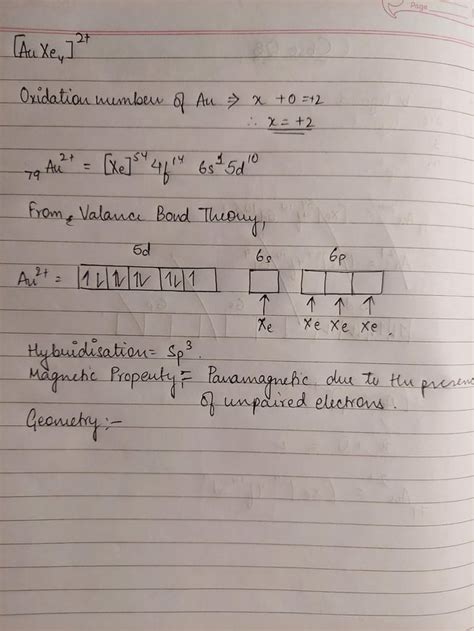 Page
[AuXe₄]²⁺
Oxidation number of Au ⇒ x + 0 = +2
∴ x = +2
₇₉Au²⁺ = [Xe]⁵⁴ 4f¹⁴ 6s¹ 5d¹⁰
From Valance Bond Theory,
5d 6s 6p
Au²⁺ = 1⇂ 1⇂ 1⇂ 1⇂ 1
Xe Xe Xe Xe
Hybridisation = Sp³.
Magnetic Property:= Paramagnetic due to the presen
of unpaired electrons.
Geometry:-